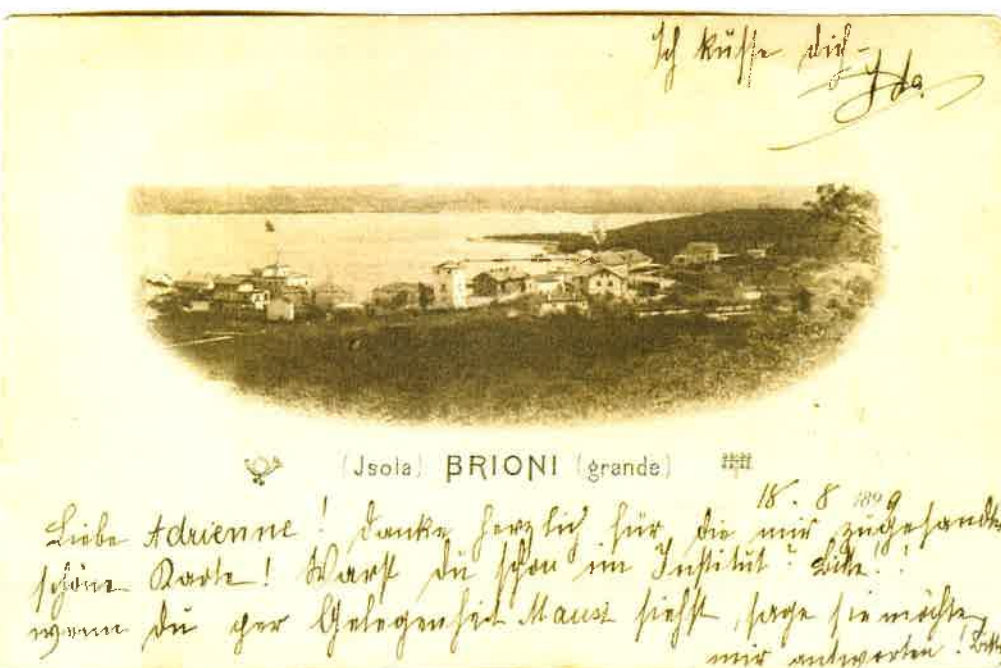 Ich küsse dich
Ida.
(Jsola) BRIONI (grande)
18. 8 1899
Liebe Adrienne! Danke herzlich für die mir zugesandte
schöne Karte! Warst du schon im Institut? Bitte!!
wenn du per Gelegenheit siehst, sage sie möchte
mir antworten! Bitte